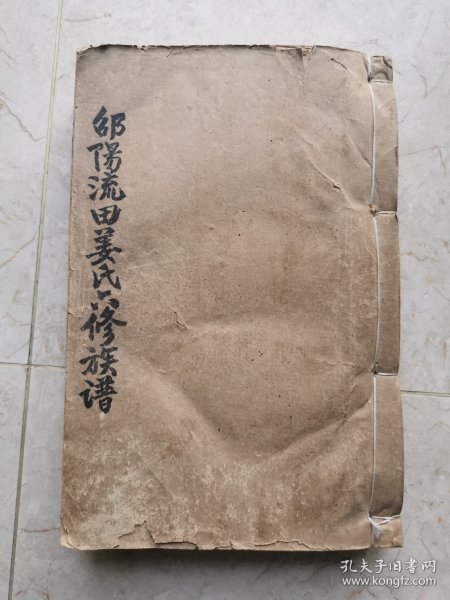 邵陽流田姜氏六修族谱
孔夫子旧书网
www.kongfz.com